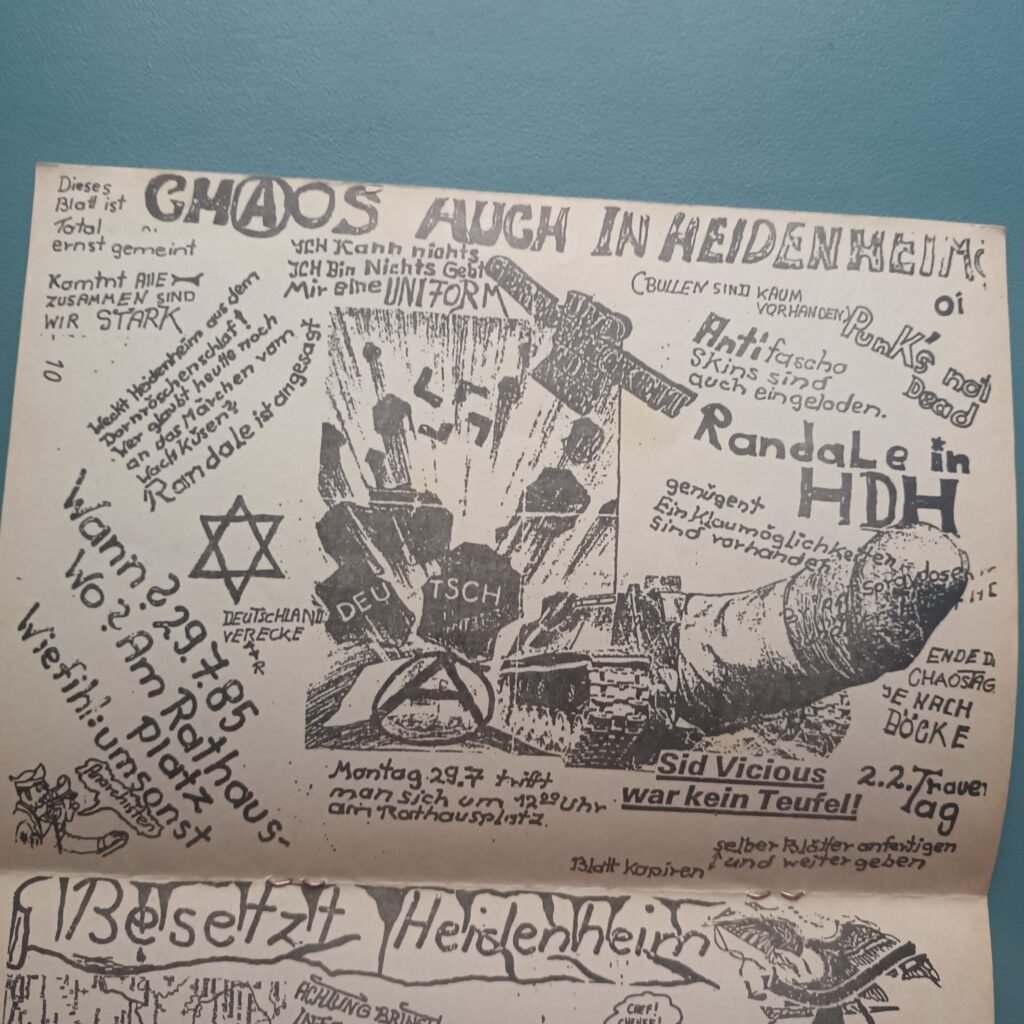 Dieses
Blatt ist
Total
ernst gemeint
CHAOS AUCH IN HEIDENHEIM
Kommt Alle
ZUSAMMEN SIND
WIR STARK
10
JCH Kann nichts
JCH Bin Nichts Gebt
Mir eine UNIFORM
(BULLEN SIND KAUM
VORHANDEN)
oi
Punk's not
Dead
Weckt Heidenheim aus dem
Dornröschenschlaf!
Wer glaubt heute noch
an das Märchen vom
Randale ist angesagt
Antifascho
Skins sind
auch eingeloden.
Randale in
HDH
genügent
Ein Klaumöglichkeiten
sind vorhanden
DEUTSCHLAND
VERECKE
DEU TSCH
Wann? 29.7.85
Wo? Am Rathaus-
platz
Wiefih!: umsonst
Anarchisten
ENDE D.
CHAOSTAG
JE NACH
BÖCKE
Montag 29.7 trifft
man sich um 12 Uhr
am Rathausplatz.
Sid Vicious
war kein Teufel!
2.2. Trauer
Tag
selber Blätter anfertigen
Blatt Kopiren! und weiter geben
Besetzt Heidenheim
ACHTUNG BRINGT
CHEF!